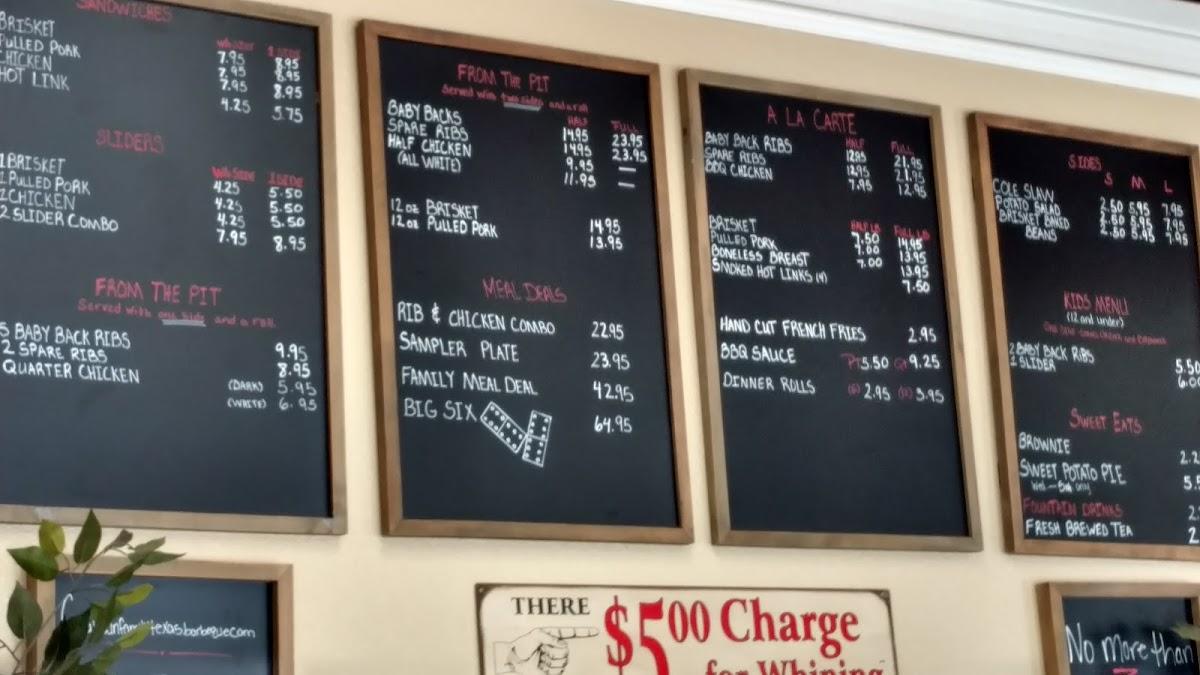 SANDWICHES
W/O SIDE 1 SIDE
BRISKET 7.95 8.95
PULLED PORK 7.95 8.95
CHICKEN 7.95 8.95
HOT LINK 4.25 5.75
SLIDERS
W/O SIDE 1 SIDE
1 BRISKET 4.25 5.50
1 PULLED PORK 4.25 5.50
1 CHICKEN 4.25 5.50
2 SLIDER COMBO 7.95 8.95
FROM THE PIT
Served with one side and a roll
5 BABY BACK RIBS 9.95
2 SPARE RIBS 8.95
QUARTER CHICKEN (DARK) 5.95
(WHITE) 6.95
FROM THE PIT
Served with two sides and a roll
HALF FULL
BABY BACKS 14.95 23.95
SPARE RIBS 14.95 23.95
HALF CHICKEN 9.95 —
(ALL WHITE) 11.95 —
12 oz BRISKET 14.95
12 oz PULLED PORK 13.95
MEAL DEALS
RIB & CHICKEN COMBO 22.95
SAMPLER PLATE 23.95
FAMILY MEAL DEAL 42.95
BIG SIX 64.95
A LA CARTE
HALF FULL
BABY BACK RIBS 12.95 21.95
SPARE RIBS 12.95 21.95
BBQ CHICKEN 7.95 12.95
HALF LB FULL LB
BRISKET 7.50 14.95
PULLED PORK 7.00 13.95
BONELESS BREAST 7.00 13.95
SMOKED HOT LINKS (4) 7.50
HAND CUT FRENCH FRIES 2.95
BBQ SAUCE PT 5.50 QT 9.25
DINNER ROLLS (6) 2.95 3.95
SIDES
S M L
COLE SLAW 2.50 5.95 7.95
POTATO SALAD 2.50 5.95 7.95
BRISKET BAKED 2.50 5.95 7.95
BEANS
KIDS MENU
(12 and under)
2 BABY BACK RIBS 5.50
1 SLIDER
SWEET EATS
BROWNIE
SWEET POTATO PIE
Wed-Sat only
FOUNTAIN DRINKS
FRESH BREWED TEA
texasbarbeque.com
THERE $5.00 Charge
for Whining
No more than